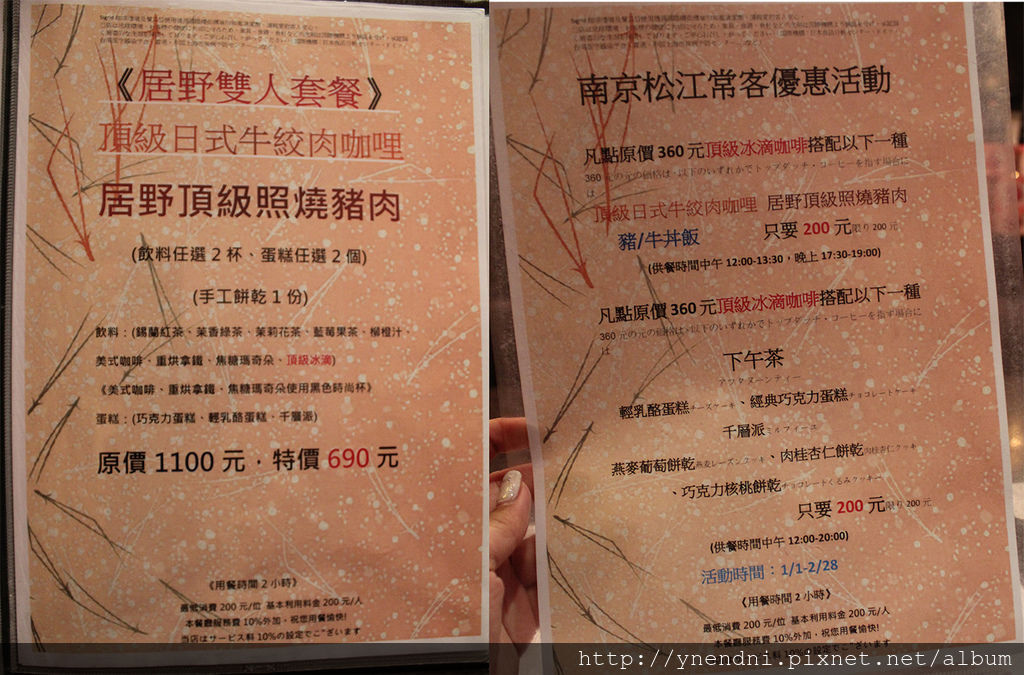 《居野雙人套餐》
頂級日式牛絞肉咖哩
居野頂級照燒豬肉
(飲料任選2杯、蛋糕任選2個)
(手工餅乾1份)
飲料：(錫蘭紅茶、茉香綠茶、茉莉花茶、藍莓果茶、柳橙汁、
美式咖啡、重烘拿鐵、焦糖瑪奇朵、頂級冰滴)
《美式咖啡、重烘拿鐵、焦糖瑪奇朵使用黑色時尚杯》
蛋糕：(巧克力蛋糕、輕乳酪蛋糕、千層派)
原價 1100 元，特價 690 元
《用餐時間 2 小時》
最低消費 200 元/位 基本利用料金 200 元/人
本餐廳服務費 10%外加，祝您用餐愉快!
当店はサービス料 10%の設定でご"ざいます
南京松江常客優惠活動
凡點原價 360 元頂級冰滴咖啡搭配以下一種
360 元の元の価格は、以下のいずれかでトップダッチ・コーヒーを指す場合に
は
頂級日式牛絞肉咖哩 居野頂級照燒豬肉
豬/牛丼飯 只要 200 元限り 200 元
(供餐時間中午 12:00-13:30，晚上 17:30-19:00)
凡點原價 360 元頂級冰滴咖啡搭配以下一種
360 元の元の価格は、以下のいずれかでトップダッチ・コーヒーを指す場合に
は
下午茶
アフタヌーンティー
輕乳酪蛋糕チーズケーキ、經典巧克力蛋糕チョコレートケーキ
千層派ミルフィーユ
燕麥葡萄餅乾燕麦レーズンクッキ、肉桂杏仁餅乾肉桂杏仁クッキ
、巧克力核桃餅乾チョコレートくるみクッキー
只要 200 元限り 200 元
(供餐時間中午 12:00-20:00)
活動時間：1/1-2/28
《用餐時間 2 小時》
最低消費 200 元/位 基本利用料金 200 元/人
本餐廳服務費 10%外加，祝您用餐愉快!
ス料 10%の設定でご"ざいます
http://ynendni.pixnet.net/album